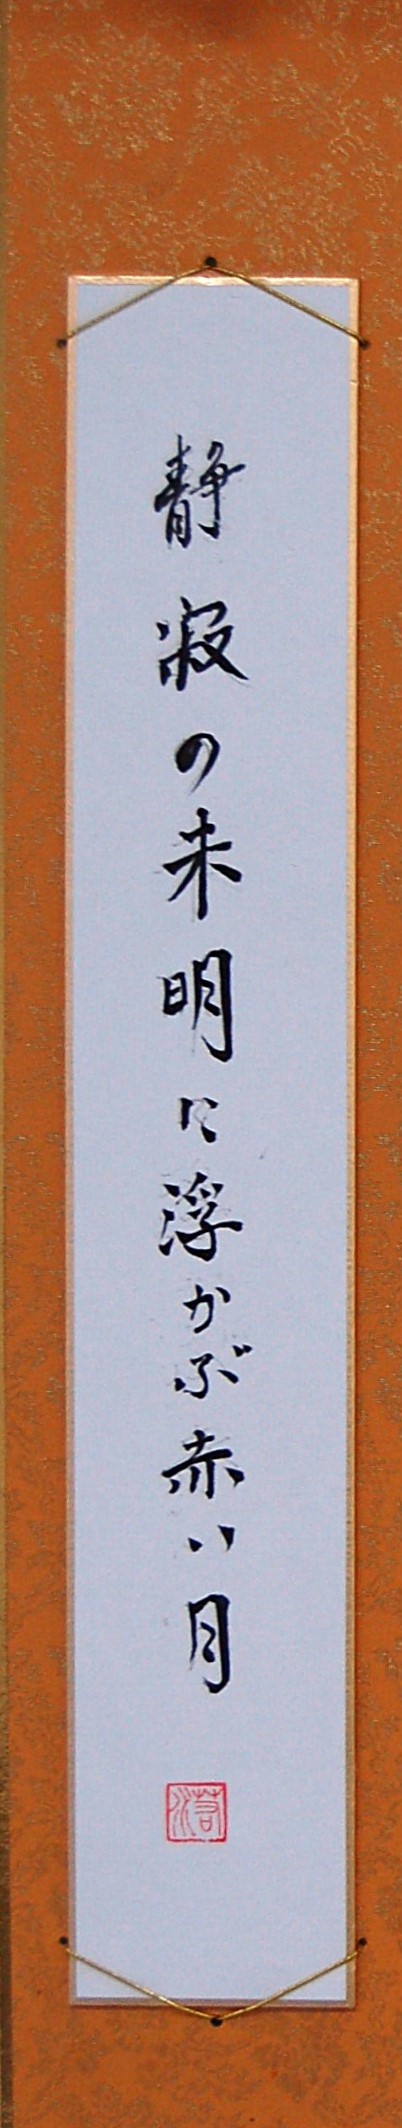 静寂の未明に浮かぶ赤い月